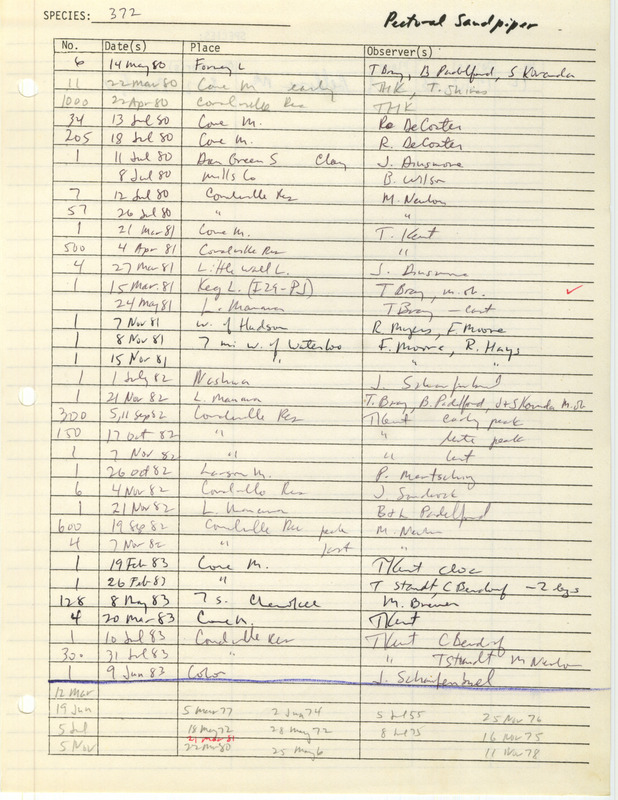 SPECIES: 372 Pectoral Sandpiper
No. Date(s) Place Observer(s)
6 14 May 80 Forney L T Bray, B Padelford, S Kovanda
11 22 Mar 80 Cone M. early THK, T. Shires
1000 22 Apr 80 Coralville Res THK
34 13 Jul 80 Cone M. Ro DeCoster
205 18 Jul 80 Cone M. R. DeCoster
1 11 Jul 80 Dan Green S Clay J. Dinsmore
8 Jul 80 Mills Co B. Wilson
7 12 Jul 80 Coralville Res M. Newlon
57 26 Jul 80 " "
1 21 Mar 81 Cone M. T. Kent
500 4 Apr 81 Coralville Res "
4 27 Mar 81 Little Wall L. J. Dinsmore
1 15 Mar 81 Keg L. (I29-PJ) T Bray, m.ob. ✓
24 May 81 L. Manawa T Bray - last
1 7 Nov 81 W. of Hudson R. Myers, F. Moore
1 8 Nov 81 7 mi w. of Waterloo F. Moore, R. Hays
1 15 Nov 81 " " "
1 1 July 82 Nashua J. Schaufenbuel
1 21 Nov 82 L. Manawa T. Bray, B. Padelford, J+S Kovanda m.ob
300 5,11 Sep 82 Coralville Res TKent early peak
150 17 Oct 82 " " late peak
1 7 Nov 82 " " last
1 26 Oct 82 Larson M. P. Martsching
6 4 Nov 82 Coralville Res J. Sandrock
1 21 Nov 82 L. Manawa B+L Padelford
600 19 Sep 82 Coralville Res peak M. Newlon
4 7 Nov 82 " last "
1 19 Feb 83 Cone M. TKent
1 26 Feb 83 " T Staudt C Bendorf - 2 legs
128 8 May 83 7 s. Cherokee M. Brewer
4 20 Mar 83 Cone M. TKent
1 10 Jul 83 Coralville Res TKent C Bendorf
300 31 Jul 83 " " T Staudt M Newlon
1 9 Jun 83 Color J. Schaufenbuel
12 Mar
19 Jun 5 Mar 77 2 Jun 74 5 Jul 55 25 Nov 76
5 Jul 18 May 72 28 May 72 8 Jul 75 16 Nov 75
21 Mar 81
5 Nov 22 Mar 80 25 May 6 11 Nov 78